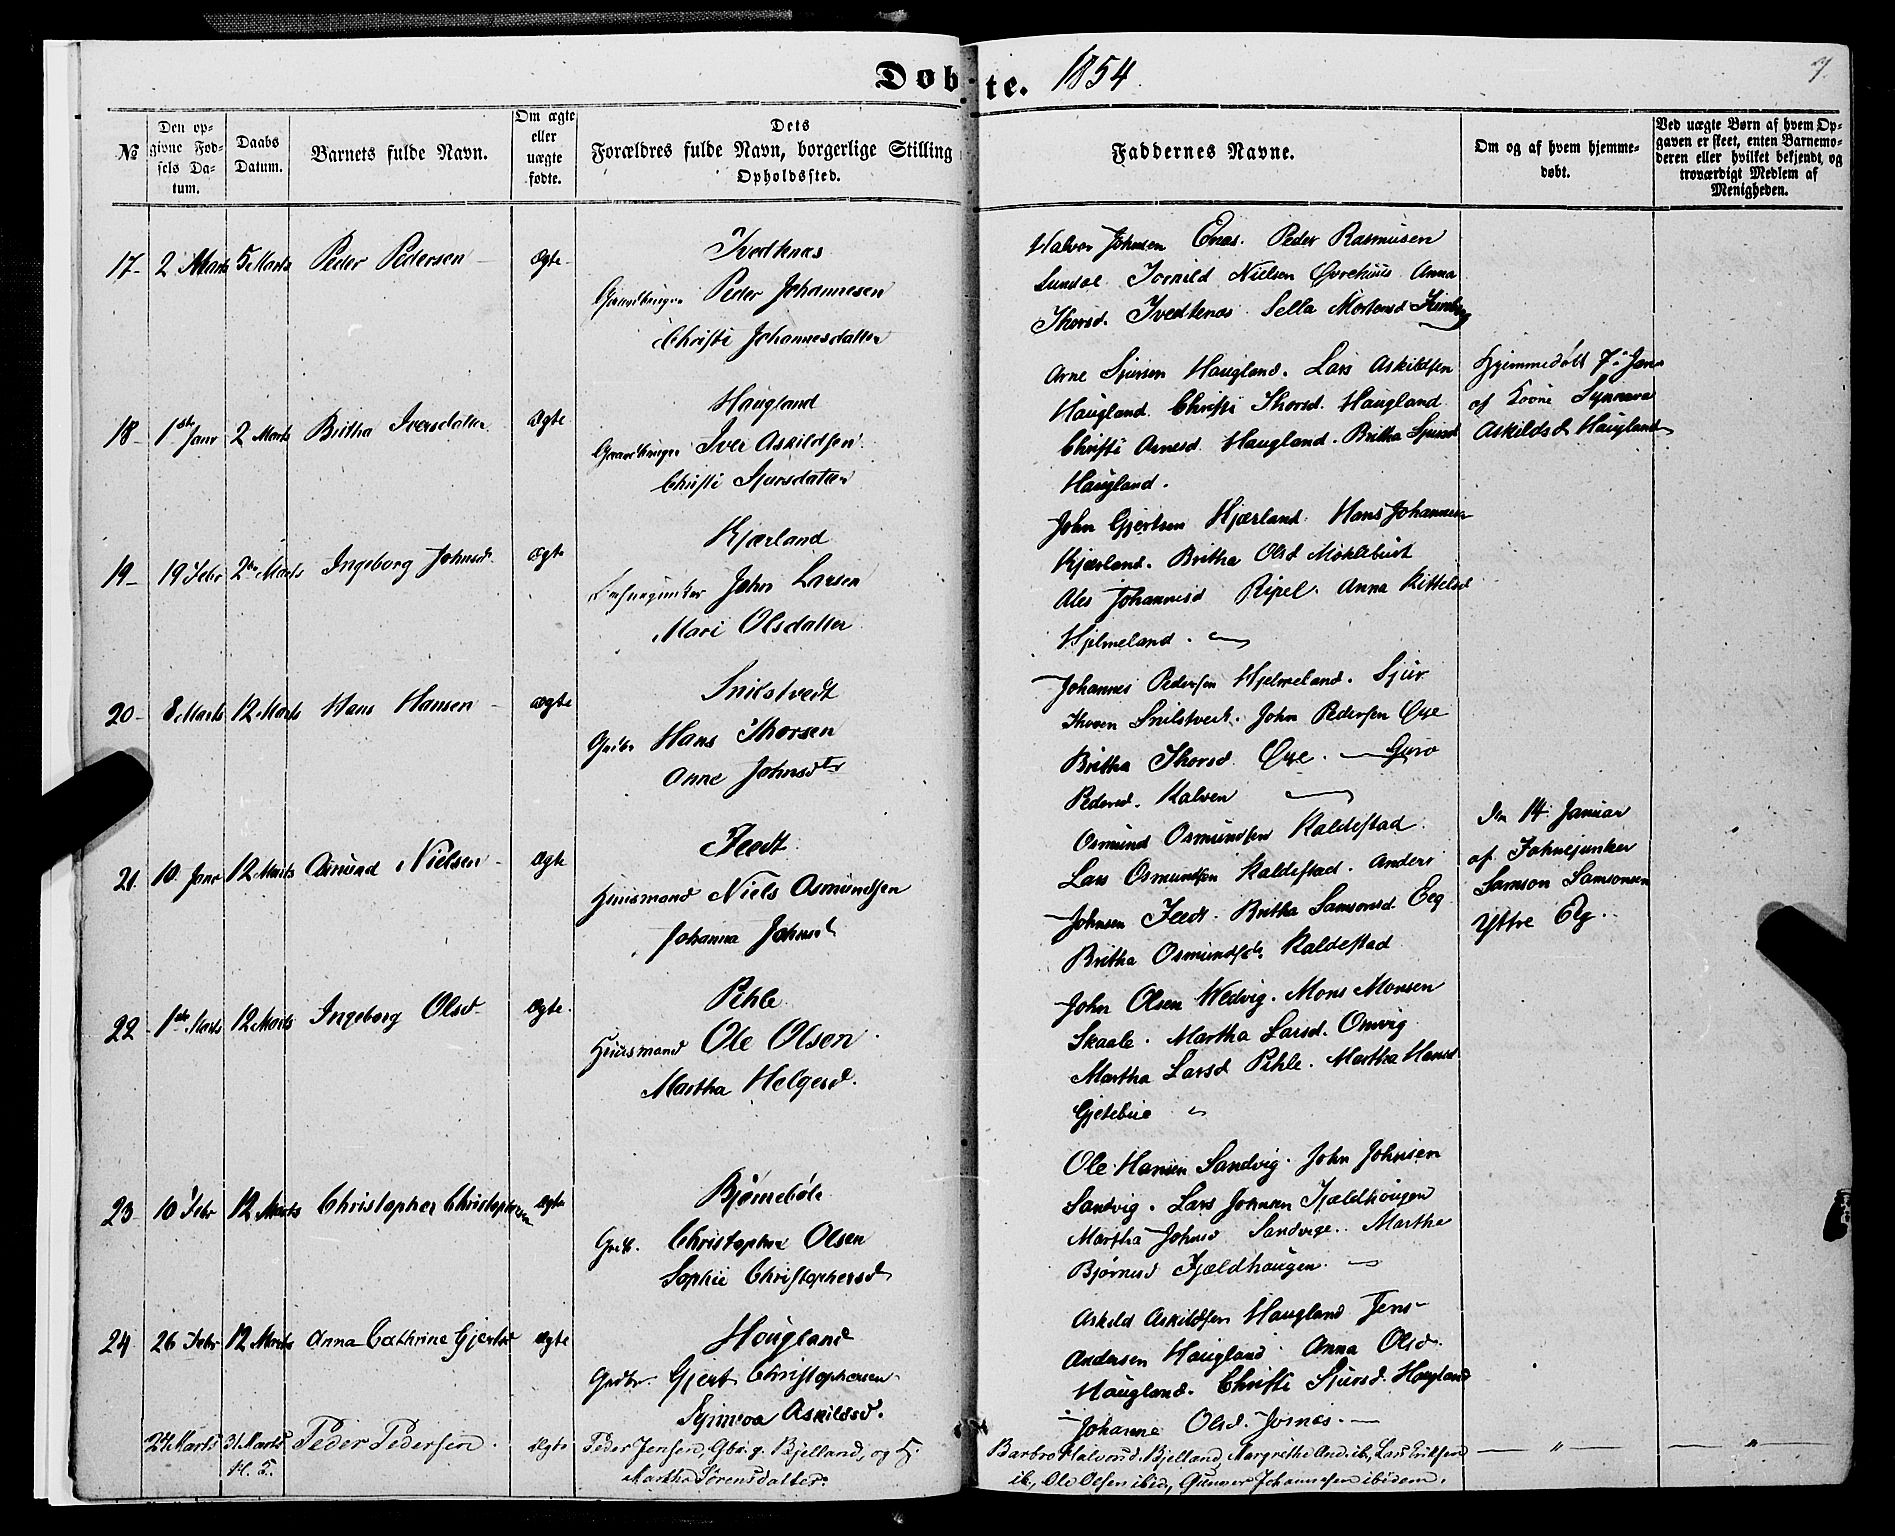 Døbte. 1854
7.
№
Den op-
givne Fød-
sels Da-
tum.
Daabs
Datum.
Barnets fulde Navn.
Om ægte
eller
uægte
fødte.
Dets
Forældres fulde Navn, borgerlige Stilling
Opholdssted.
Faddernes Navne.
Om og af hvem hjemme-
døbt.
Ved uægte Børn af hvem Op-
gaven er skeet, enten Barnemo-
deren eller hvilket bekjendt, og
troværdigt Medlem af
Menigheden.
17 2 Marts 5 Marts Peder Pedersen ægte
Tvedtenæs
Peder Johannesen
Christi Johannesdatter
Halvor Johnsen Enæs. Peder Rasmusen
Sundal Nielsen Øvrehuus Anna
Thorsd. Tvedtenæs Sella Mortensd
18 1ste Janr 2 Marts Britha Iversdatter ægte
Haugland
Gaardbruger Iver Askildsen
Christi Sjursdatter
Arne Sjursen Haugland. Lars Askildsen
Haugland Christi Thorsd. Haugland
Christi Arnesd Haugland. Britha Sjursd
Haugland.
Hjemmedøbt 7. Jan
af Kone Synneva
Askildsd Haugland
19 19 Febr 2 Marts Ingeborg Johnsd. ægte
Kjærland
John Larsen
Mari Olsdatter
John Gjertsen Kjærland. Hans Johannesen
Kjærland. Britha Olsd Møklebust
Ales Johannesd Ripel. Anna Kittelsd
Hjelmeland.
20 8 Marts 12 Marts Hans Hansen ægte
Snilstvedt
Grdbr Hans Thorsen
Anne Johnsdtr
Johannes Pedersen Hjelmeland. Sjur
Iversen Snilstvedt. John Pedersen Øye
Britha Thorsd. Øye. Guro
Pedersd. Kalven
21. 10 Janr 12 Marts Osmund Nielsen ægte
Tvedt
Huusmand Niels Osmundsen
Johanna Johnsd
Osmund Osmundsen Kaldestad.
Lars Osmundsen Kaldestad. Anders
Johnsen Tvedt. Britha Samsonsd. Eeg
Britha Osmundsd. Kaldestad
Den 14 Januar
af Fahnejunker
Samson Samsonsen
Yttre Eg.
22 1ste Marts 12 Marts Ingeborg Olsd ægte.
Pihle
Huusmand Ole Olsen
Martha Helgesd.
John Olsen Wedvig. Mons Monsen
Skaale. Martha Larsd. Omvig
Martha Larsd Pihle. Martha Hansd
Gjetebüe
23 10 Febr 12 Marts Christopher Christophersen ægte
Bjørnebøle
Grdb. Christopher Olsen
Sophie Christophersd
Ole Hansen Sandvig. John Johnsen
Sandvig. Lars Johnsen Fjældhaugen
Martha Johnsd Sandvige. Martha
Bjørnesd Fjældhaugen.
24 26 Febr 12 Marts Anna Cathrine Gjertsd ægte
Haugland
Grdbr. Gjert Christophersen
Synneva Askildsd.
Askild Askildsen Haugland Jens
Andersen Haugland. Anna Olsd.
Haugland. Christi Sjursd. Haugland
Johanne Olsd. Jørnæs.
24 Marts 31 Marts Peder Pedersen. ægte
H. T.
Peder Jensen, Gbrg. Bjelland, og H.
Martha Sørensdatter.
Barbro Halvorsd. Bjelland, Margrethe And. ib, Lars Eriksen
ib., Ole Olsen ibid, Gunner Johannesen ibidem.